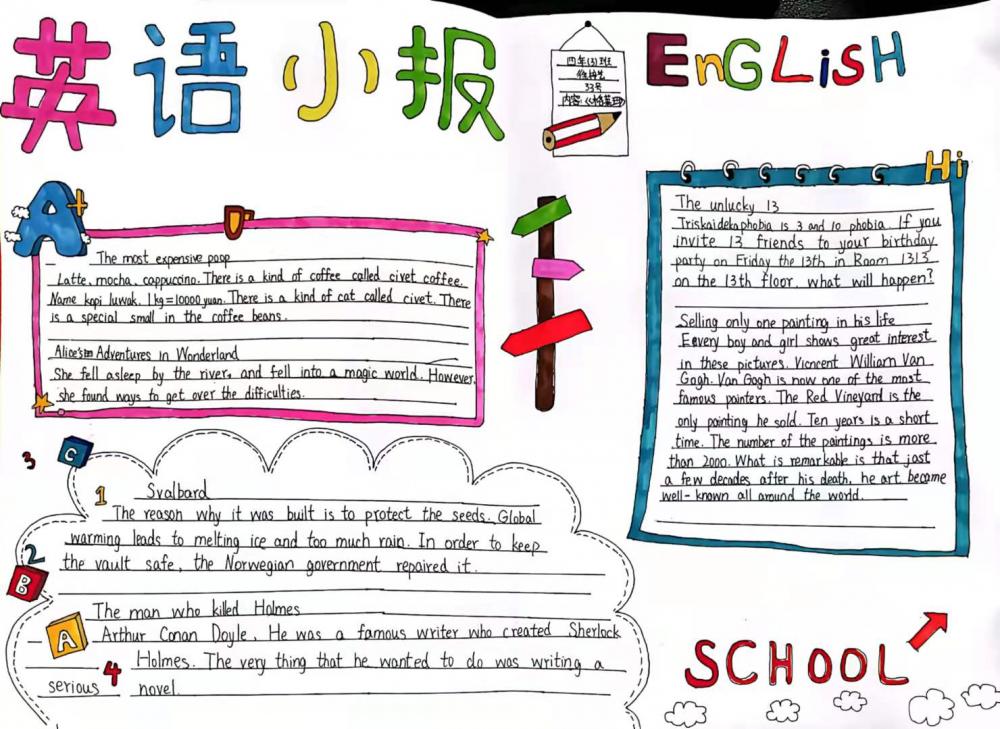 英语小报
ENGLISH
四年(3)班
33号
内容:
A+
Hi
The most expensive poop
Latte, mocha, cappuccino. There is a kind of coffee called civet coffee.
Name kopi luwak. 1kg=10000yuan. There is a kind of cat called civet. There
is a special small in the coffee beans.
Alice's Adventures in Wonderland
She fell asleep by the river, and fell into a magic world. However,
she found ways to get over the difficulties.
The unlucky 13
Triskaidekaphobia is 3 and 10 phobia. If you
invite 13 friends to your birthday
party on Friday the 13th in Room 1313
on the 13th floor. what will happen?
Selling only one painting in his life
Eevery boy and girl shows great interest
in these pictures. Vicncent William Van
Gogh. Van Gogh is now one of the most
famous painters. The Red Vineyard is the
only painting he sold. Ten years is a short
time. The number of the paintings is more
than 2000. What is remarkable is that jast
a few decades after his death, he art became
well-known all around the world.
3
C
1
Svalbard
The reason why it was built is to protect the seeds. Global
warming leads to melting ice and too much rain. In order to keep
the vault safe, the Norwegian government repaired it.
2
B
The man who killed Holmes
A
Arthur Conan Doyle. He was a famous writer who created Sherlock
Holmes. The very thing that he wanted to do was writing a
4
serious novel.
SCHOOL